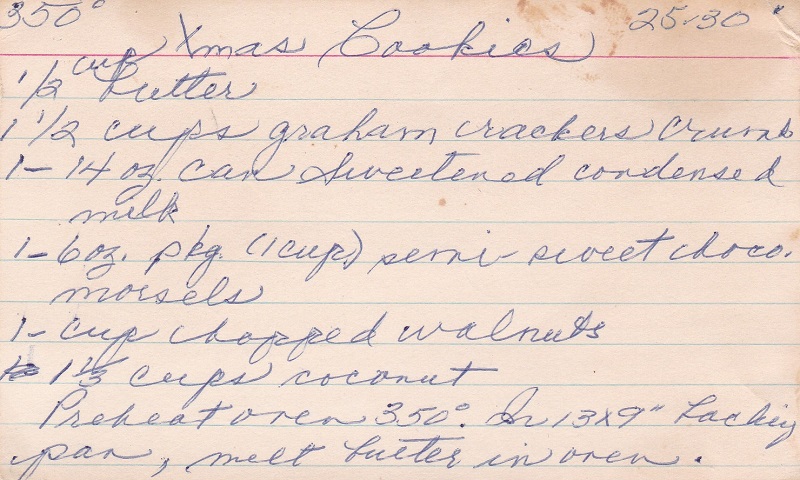 350° Xmas Cookies 25-30'
1/2 cup butter
1 1/2 cups graham crackers crumb
1- 14 oz. can sweetened condensed
milk
1- 6 oz. pkg. (1 cup) semi-sweet choco.
morsels
1- cup chopped walnuts
1 1/3 cups coconut
Preheat oven 350°. In 13x9"
pan, melt butter in oven.